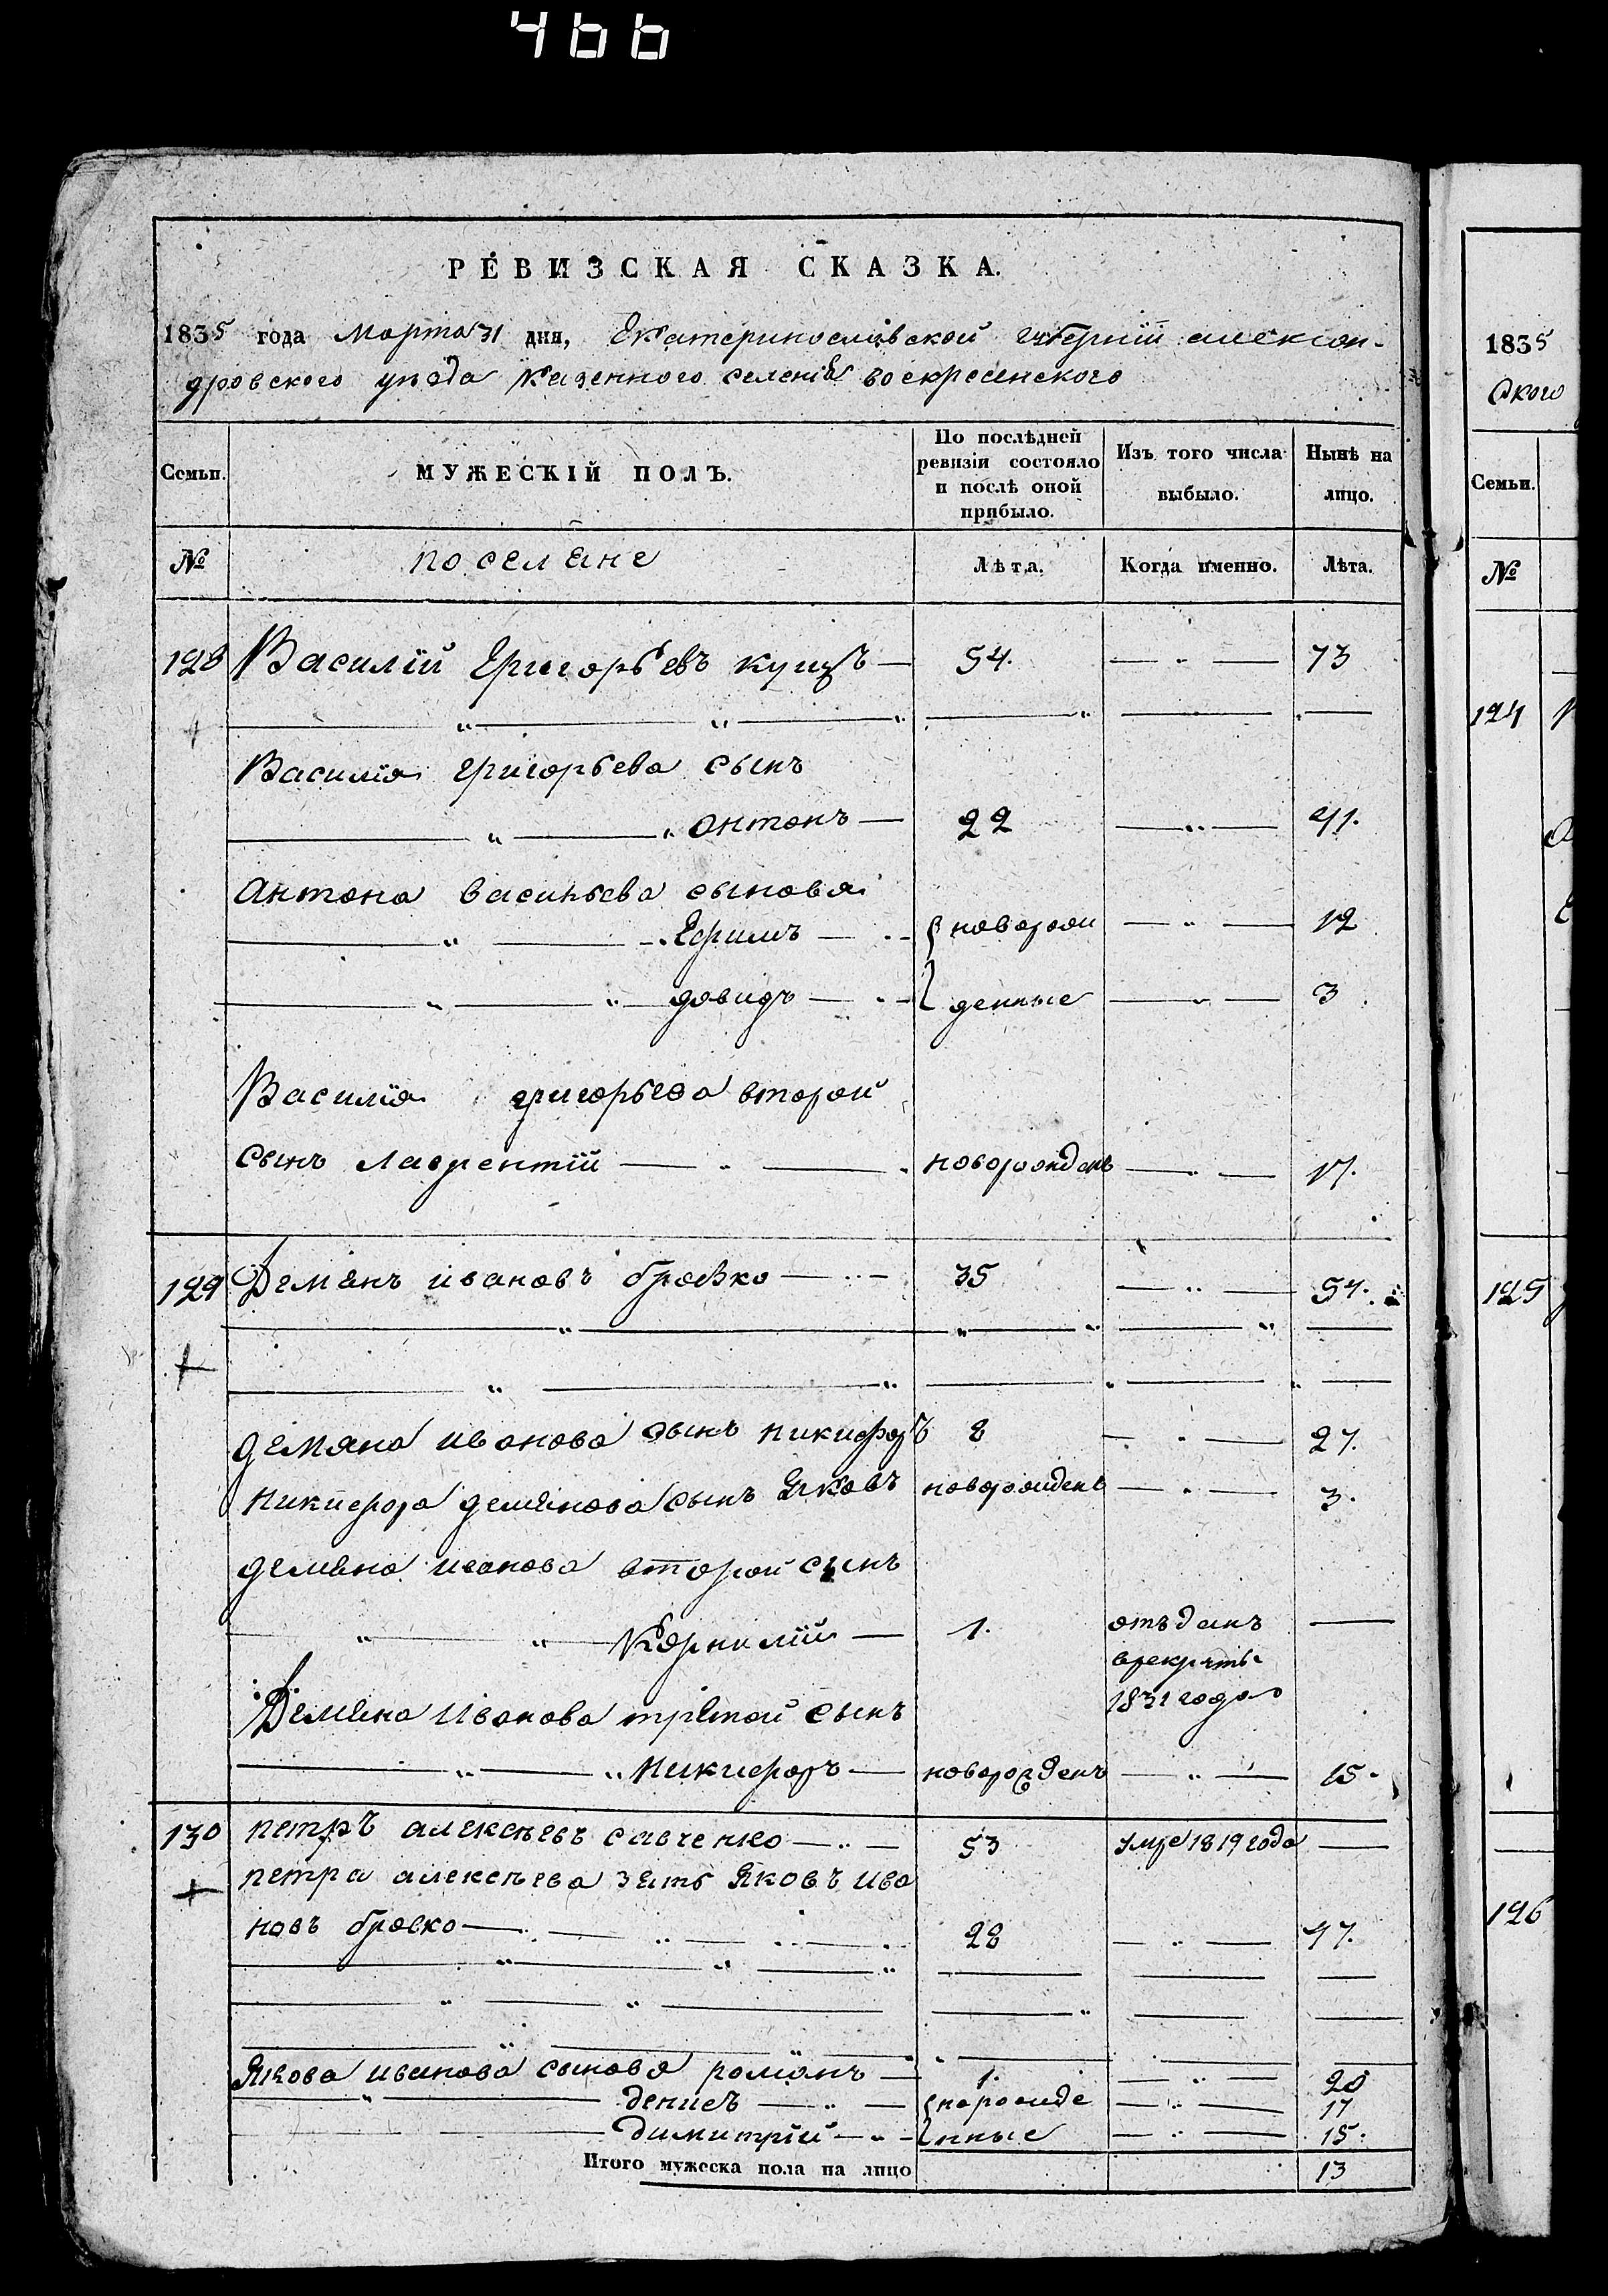 466
РЕВИЗСКАЯ СКАЗКА.
1835 года Марта 31 дня, Екатеринославской губерніи алексан-
дровского уѣзда казенного селенія воскресенского
Семьи.
МУЖЕСКІЙ ПОЛЪ.
По послѣдней ревизіи состояло и послѣ оной прибыло.
Изъ того числа выбыло.
Нынѣ на лицо.
№ поселяне Лѣта. Когда именно. Лѣта.
128 Василій Григорьевъ куцъ — 54. — " — 73
Василія григорьева сынъ
антонъ — 22 — " — 41.
антона васильева сыновя
Ефимъ — новорож — " — 12
довидъ — денные — " — 3
Василія григорьева второй
сынъ лаврентій — " — новорожденъ — " — 17.
129 Демянъ ивановъ бровко — " — 35 — " — 54.
демяна иванова сынъ никифоръ 8 — " — 27.
никифора демянова сынъ Яковъ новорожденъ — " — 3.
демяна иванова второй сынъ
Корнилій — 1. отъданъ —
врекруты
1831 года
Демяна Иванова третой сынъ
никифоръ — новорожденъ — " — 15.
130 петръ алексѣевъ савченко — " — 53 умре 1819 года —
петра алексѣева зять Яковъ ива
новъ бровко — 28 — " — 47.
Якова иванова сыновя романъ — 1. — " — 20
денисъ — " — нарожде — " — 17
димитрій — " — нные — " — 15.
Итого мужеска пола на лицо 13
1835
ского
Семьи.
№
124
125
126